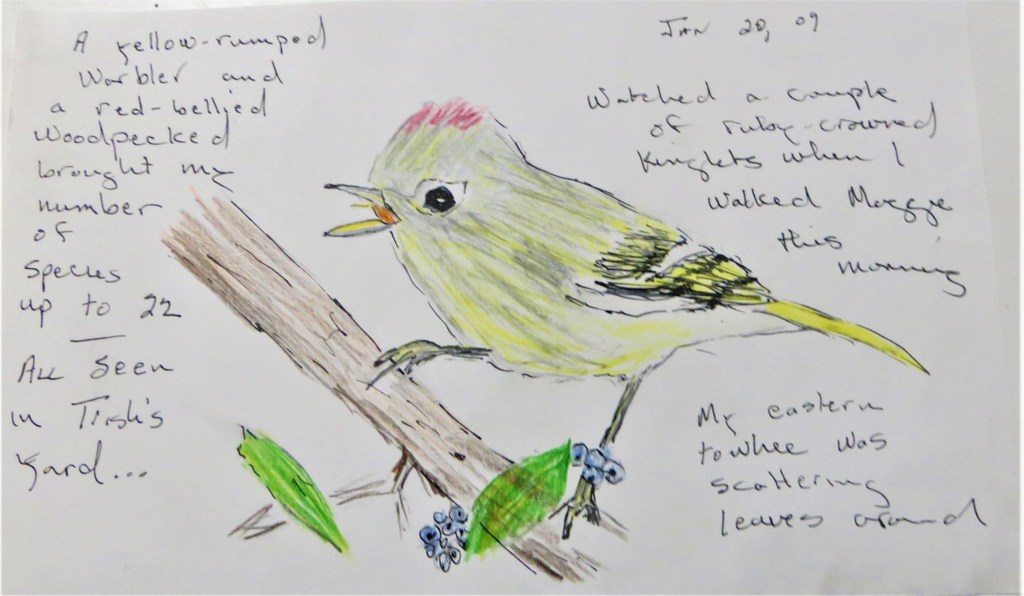 A yellow-rumped
Warbler and
a red-bellied
Woodpecked
brought my
number
of
species
up to 22
—
All seen
in Trish's
yard...
JAN 20, 09
Watched a couple
of ruby-crowned
Kinglets when I
walked Maggie
this
morning
My eastern
towhee was
scattering
leaves around